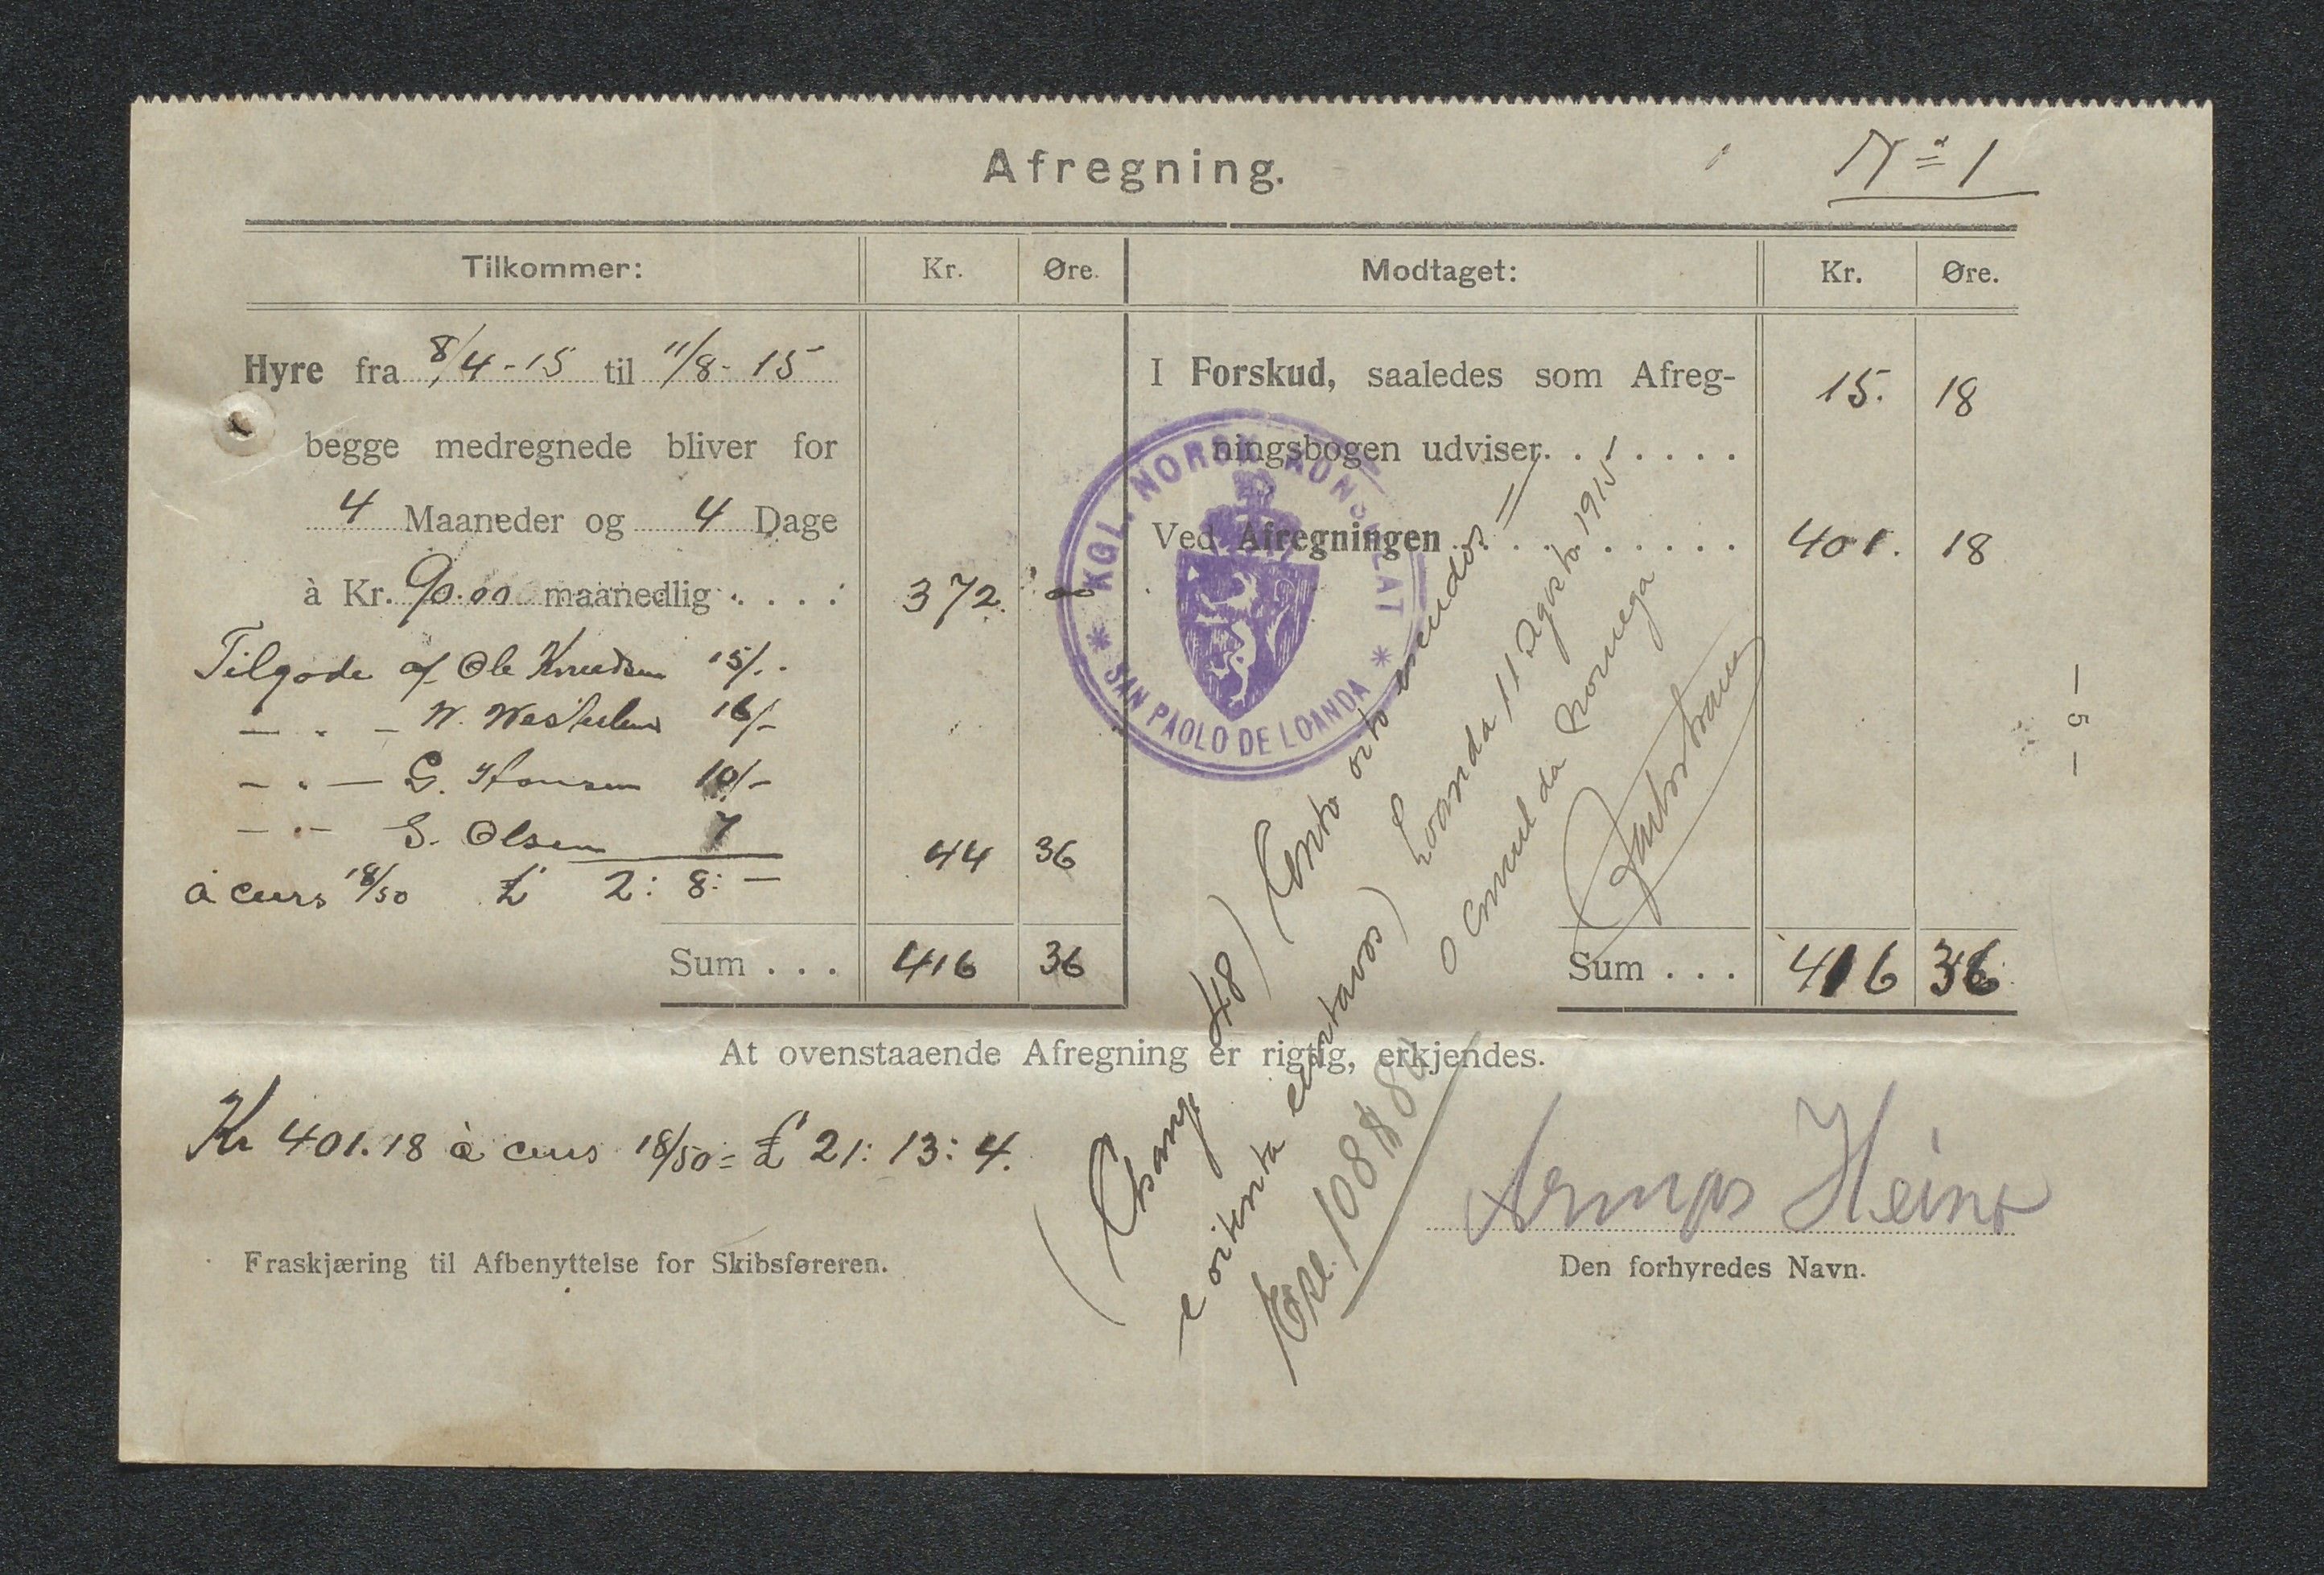 Afregning.
Nº 1
Tilkommer: Kr. Øre.
Hyre fra 8/4-15 til 11/8-15
begge medregnede bliver for
4 Maaneder og 4 Dage
à Kr. 90.00 maanedlig . . . . 372. 00
Tilgode af Ole Knudsen 15/.
— " — W. Westerlund 16/-
— " — G. Hansen 10/-
— " — S. Olsen 7
44 36
à curs 18/50 £ 2: 8: —
Sum . . . 416 36
Modtaget: Kr. Øre.
I Forskud, saaledes som Afreg-
ningsbogen udviser. . . . . . 15. 18
Ved Afregningen . . . . . . . . 401. 18
Sum . . . 416 36
KGL. NORSK KONSULAT
* SAN PAOLO DE LOANDA *
— 5 —
At ovenstaaende Afregning er rigtig, erkjendes.
Kr 401.18 à curs 18/50 = £ 21: 13: 4.
(Change 48) (Cento oito escudos =
e oitenta centavos)
Esc. 108$80
Loanda 11 Agosto 1915
O Consul da Noruega
Heino
Fraskjæring til Afbenyttelse for Skibsføreren.
Den forhyredes Navn.